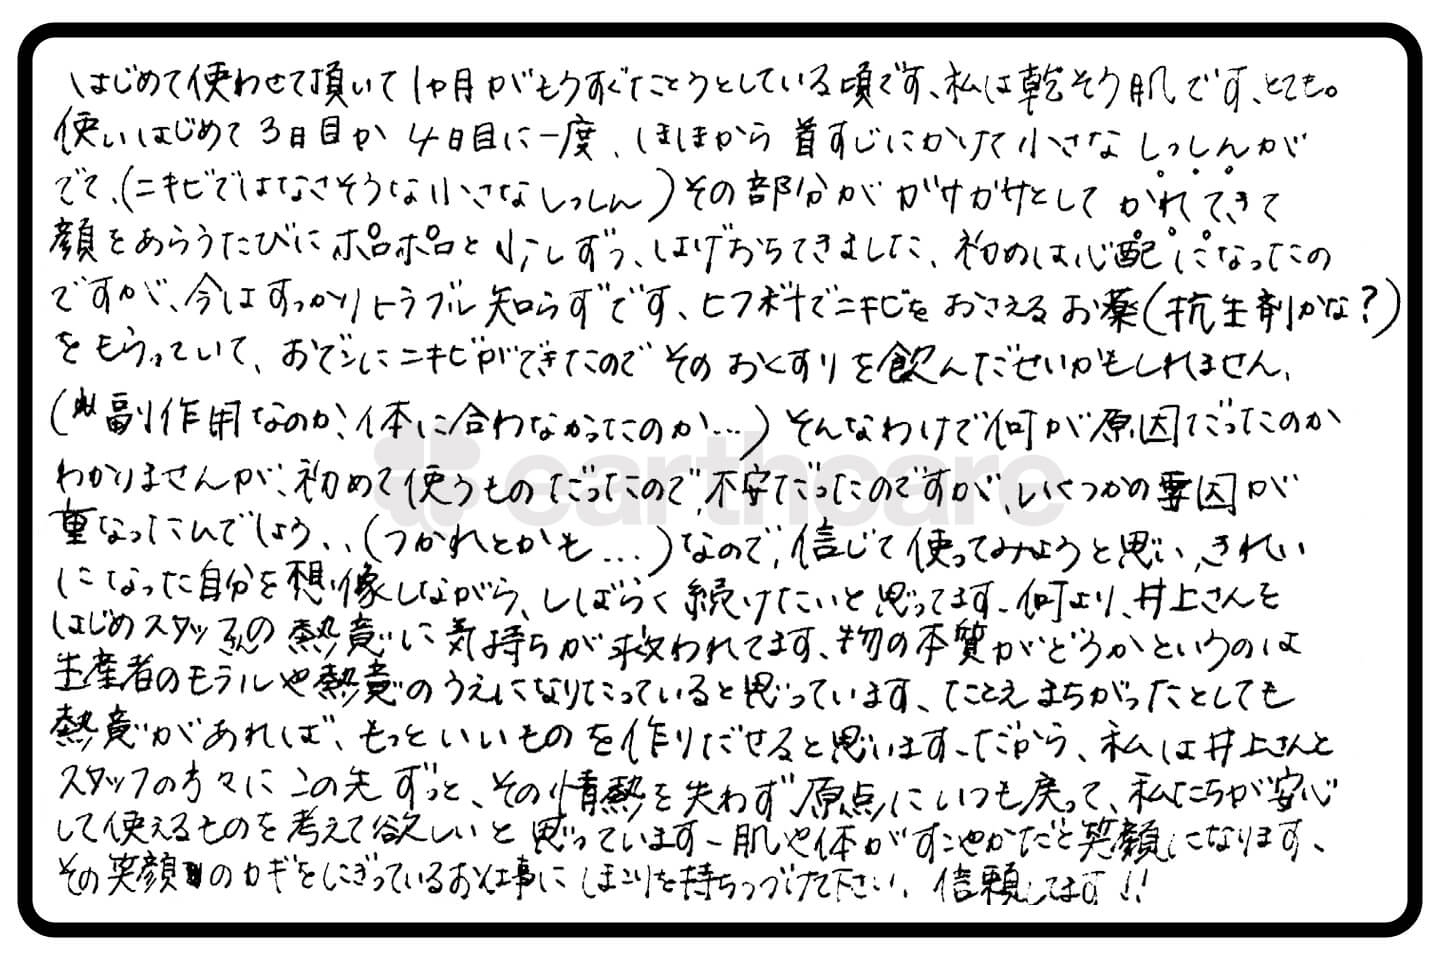 はじめて使わせて頂いて1ヶ月がもうすぐたとうとしている頃です、私は乾そう肌です、とても。
使いはじめて3日目か4日目に一度、ほほから首すじにかけて小さなしっしんが
でて、(ニキビではなさそうな小さなしっしん)その部分がガサガサとしてかれてきて
顔をあらうたびにポロポロと少しずつ、はげおちてきました、初めは心配になったの
ですが、今はすっかりトラブル知らずです、ヒフ科でニキビをおさえるお薬(抗生剤かな?)
をもらっていて、おでこにニキビができたのでそのおくすりを飲んだせいかもしれません、
(副作用なのか、体に合わなかったのか…)そんなわけで何が原因だったのか
わかりませんが、初めて使うものだったので、不安だったのですが、いくつかの要因が
重なったんでしょう、、(つかれとかも…)なので、信じて使ってみようと思い、きれい
になった自分を想像しながら、しばらく続けたいと思ってます、何より、井上さんを
はじめスタッフさんの熱意に気持ちが救われてます、物の本質がどうかというのは
生産者のモラルや熱意のうえになりたっていると思っています、たとえまちがったとしても
熱意があれば、もっといいものを作りだせると思います、だから、私は井上さんと
スタッフの方々にこの先ずっと、その情熱を失わず原点にいつも戻って、私たちが安心
して使えるものを考えて欲しいと思っています、肌や体がすこやかだと笑顔になります、
その笑顔のカギをにぎっているお仕事にほこりを持ちつづけて下さい、信頼してます!!
earthcare